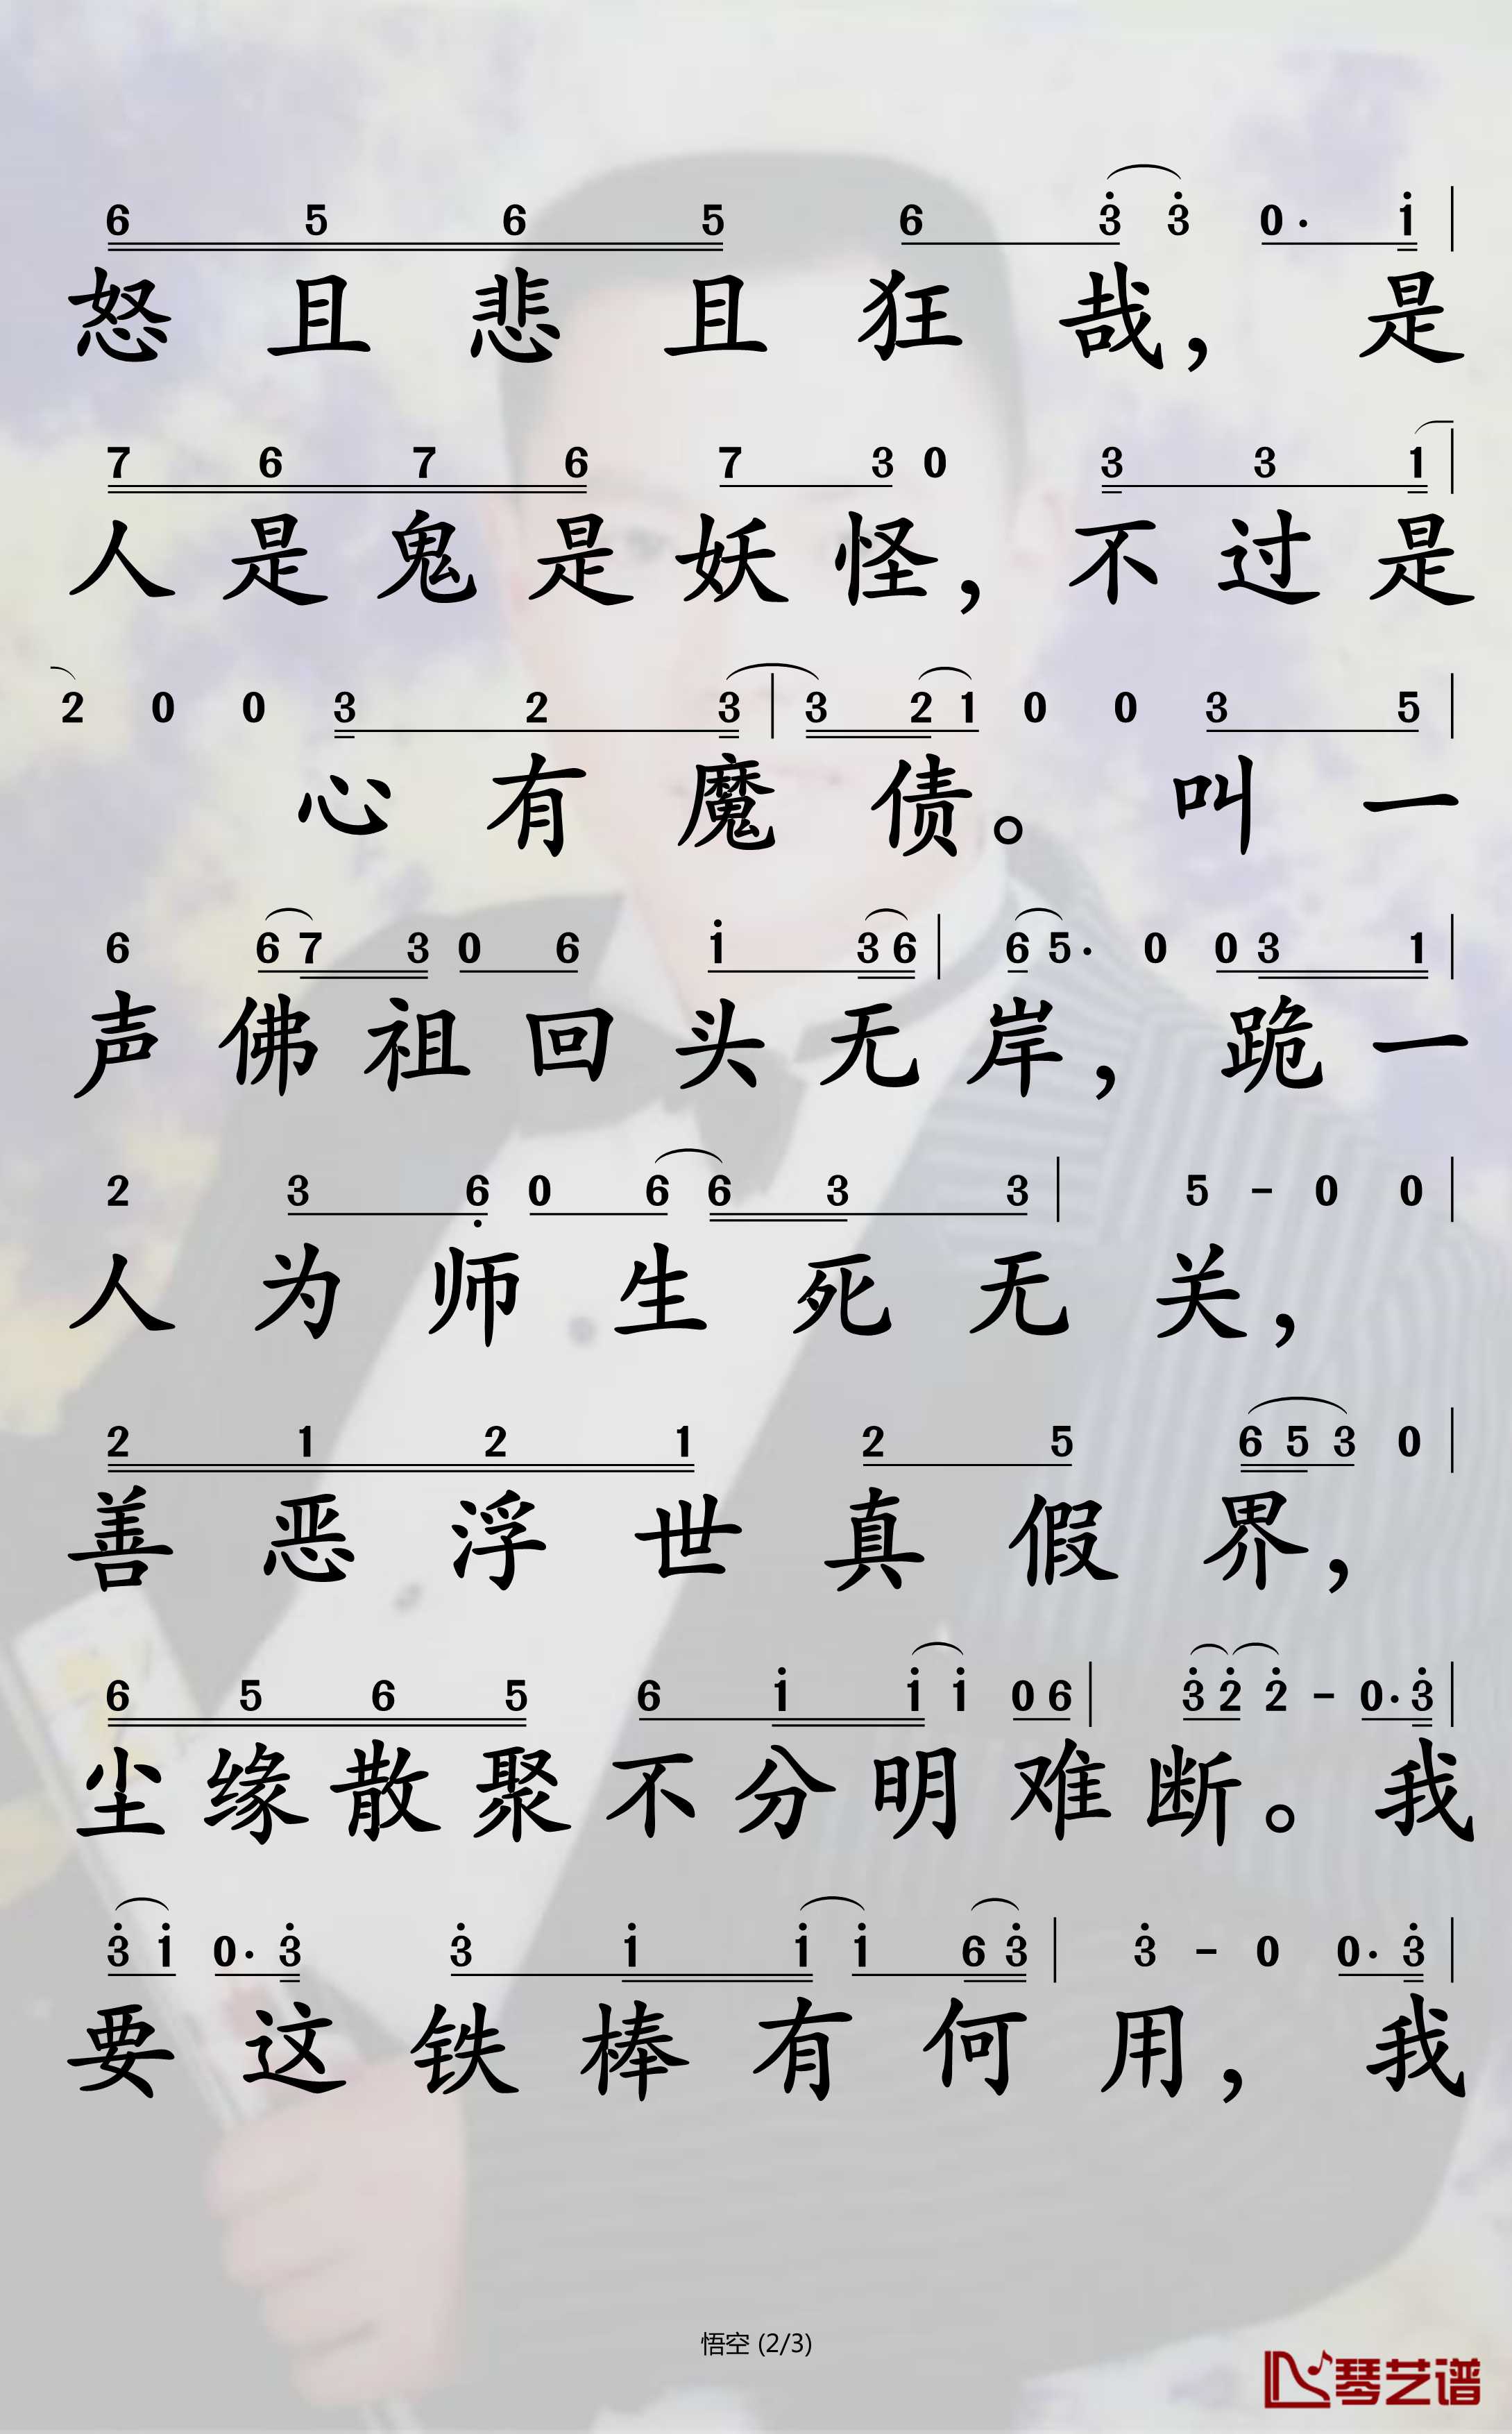 6 5 6 5 6 3̇ 3̇ 0· 1̇ |
怒且悲且狂哉，是
7 6 7 6 7 3 0 3 3 1 |
人是鬼是妖怪，不过是
2 0 0 3 2 3 | 3 2 1 0 0 3 5 |
心有魔债。叫一
6 6 7 3 0 6 1̇ 3 6 | 6 5· 0 0 3 1 |
声佛祖回头无岸，跪一
2 3 6̣ 0 6 6 3 3 | 5 - 0 0 |
人为师生死无关，
2 1 2 1 2 5 6 5 3 0 |
善恶浮世真假界，
6 5 6 5 6 1̇ 1̇ 1̇ 0 6 | 3̇ 2̇ 2̇ - 0· 3̇ |
尘缘散聚不分明难断。我
3̇ 1̇ 0· 3̇ 3̇ 1̇ 1̇ 1̇ 6 3̇ | 3̇ - 0 0· 3̇ |
要这铁棒有何用，我
悟空 (2/3)
琴艺谱